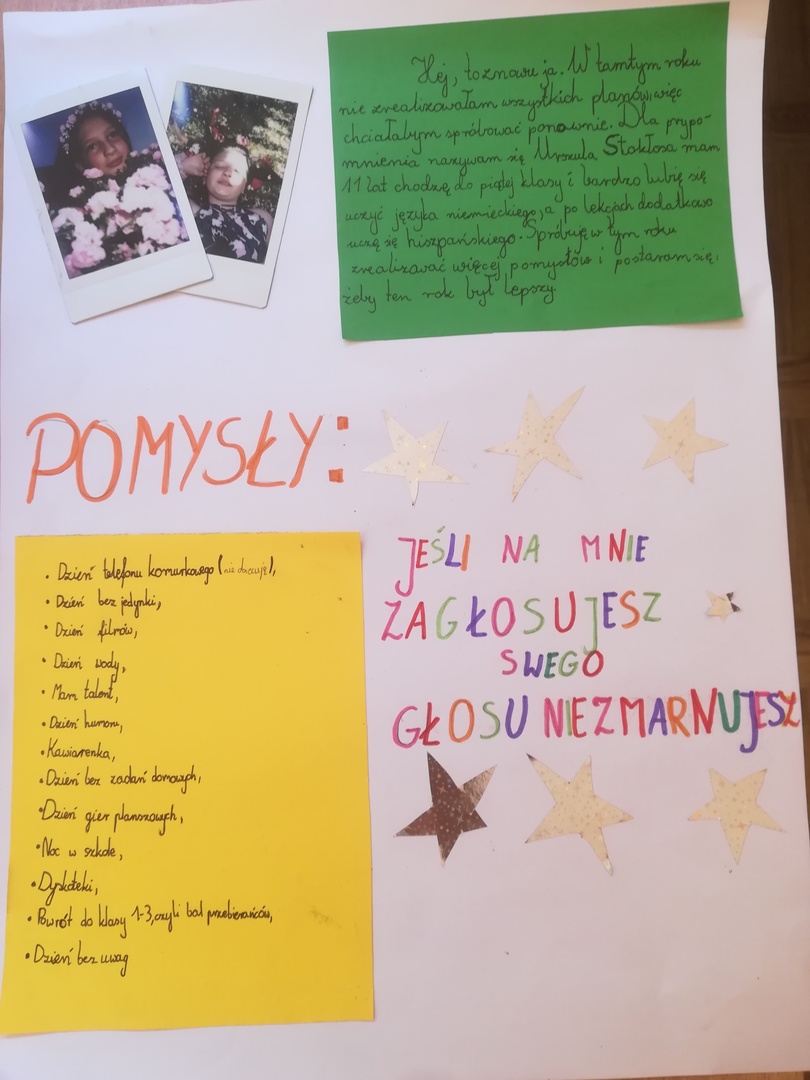 Hej, to znowu ja. W tamtym roku
nie zrealizowałam wszystkich planów, więc
chciałabym spróbować ponownie. Dla przypo-
mnienia nazywam się Urszula Stokłosa mam
11 lat chodzę do piątej klasy i bardzo lubię się
uczyć języka niemieckiego, a po lekcjach dodatkowo
uczę się hiszpańskiego. Spróbuję w tym roku
zrealizować więcej pomysłów i postaram się,
żeby ten rok był lepszy.
POMYSŁY:
• Dzień telefonu komurkowego (nie dacuję),
• Dzień bez jedynki,
• Dzień filmów,
• Dzień wody,
• Mam talent,
• Dzień humoru,
• Kawiarenka,
• Dzień bez zadań domowych,
• Dzień gier planszowych,
• Noc w szkole,
• Dyskoteki,
• Powrót do klasy 1-3, czyli bal przebierańców,
• Dzień bez uwag
JEŚLI NA MNIE
ZAGŁOSUJESZ
SWEGO
GŁOSU NIEZMARNUJESZ